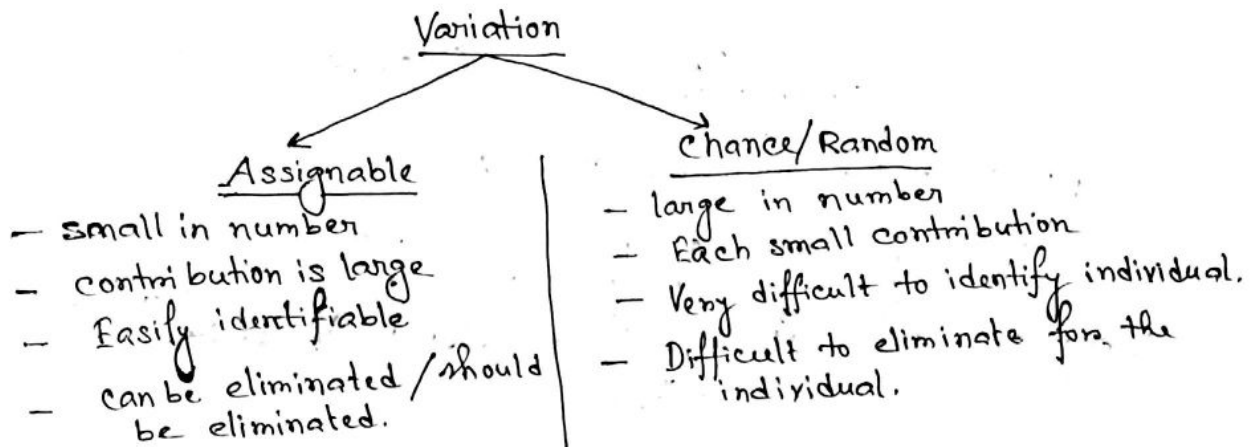 Variation
Assignable
- small in number
- contribution is large
- Easily identifiable
- can be eliminated / should
be eliminated.
Chance/Random
- large in number
- Each small contribution
- Very difficult to identify individual.
- Difficult to eliminate for the
individual.